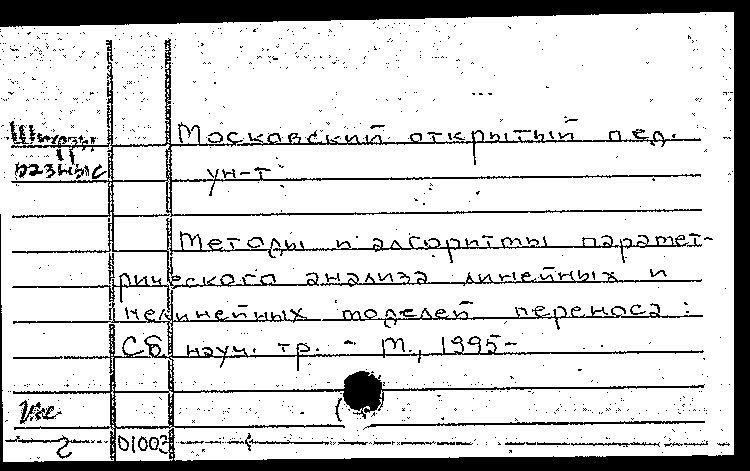 Шкафы
разные
Московский открытый пед.
ун-т
Методы и алгоритмы парамет-
рического анализа линейных и
нелинейных моделей переноса :
Сб науч. тр. - М., 1995-
01003